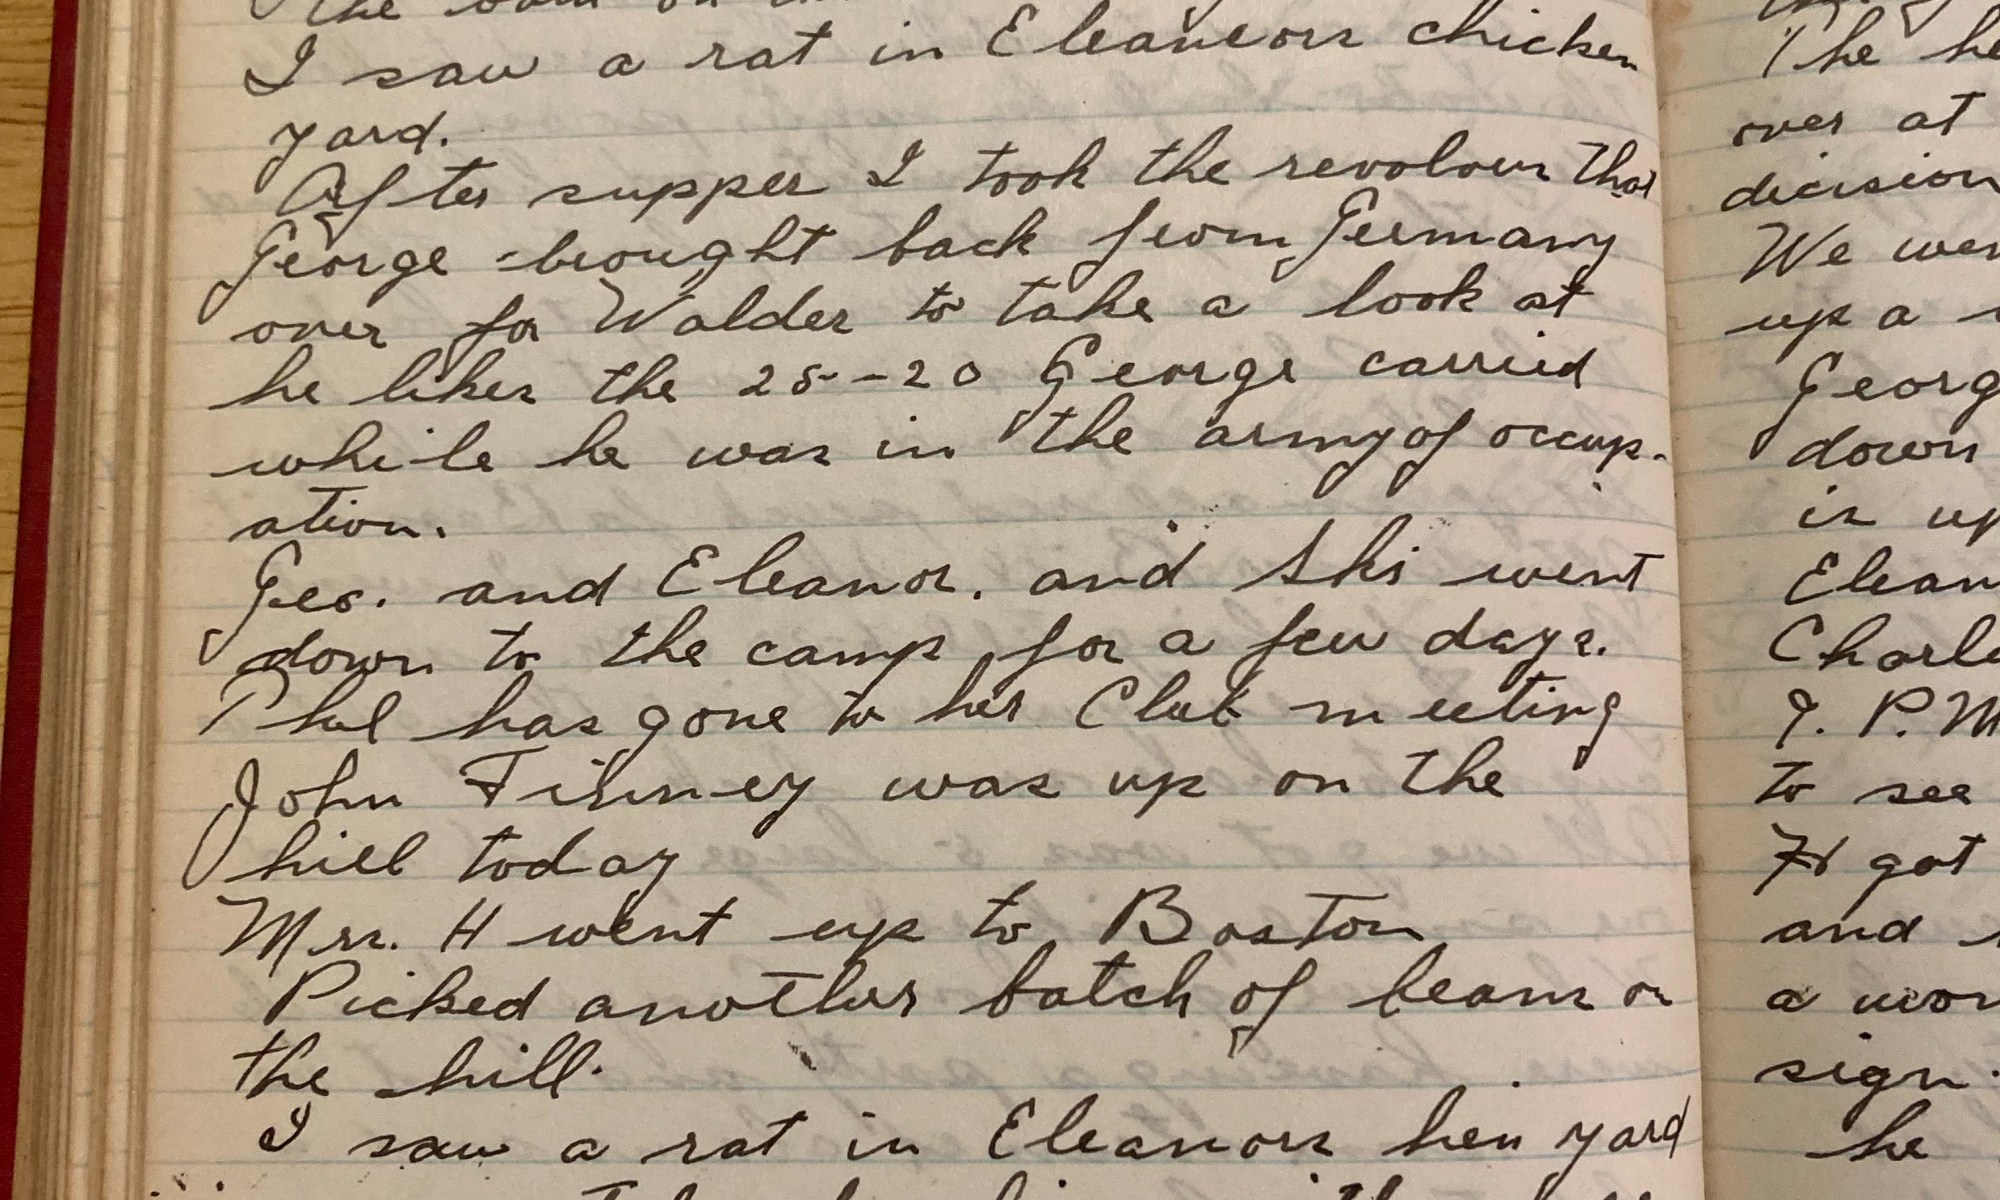 I saw a rat in Eleaneors chicken
yard.
After supper I took the revolver that
George brought back from Germany
over for Walder to take a look at
he likes the 25--20 George carried
while he was in the army of occup-
ation.
Geo. and Eleanor. and Ski went
down to the camp for a few days.
Phil has gone to her Club meeting
John Finney was up on the
hill today
Mrs. H went up to Boston
Picked another batch of beans on
the hill.
I saw a rat in Eleanors hen yard
The he
over at
decision
We wer
up a
Georg
down
is up
Elean
Charl
J. P. M
to see
got
and
a wor
sign.
he